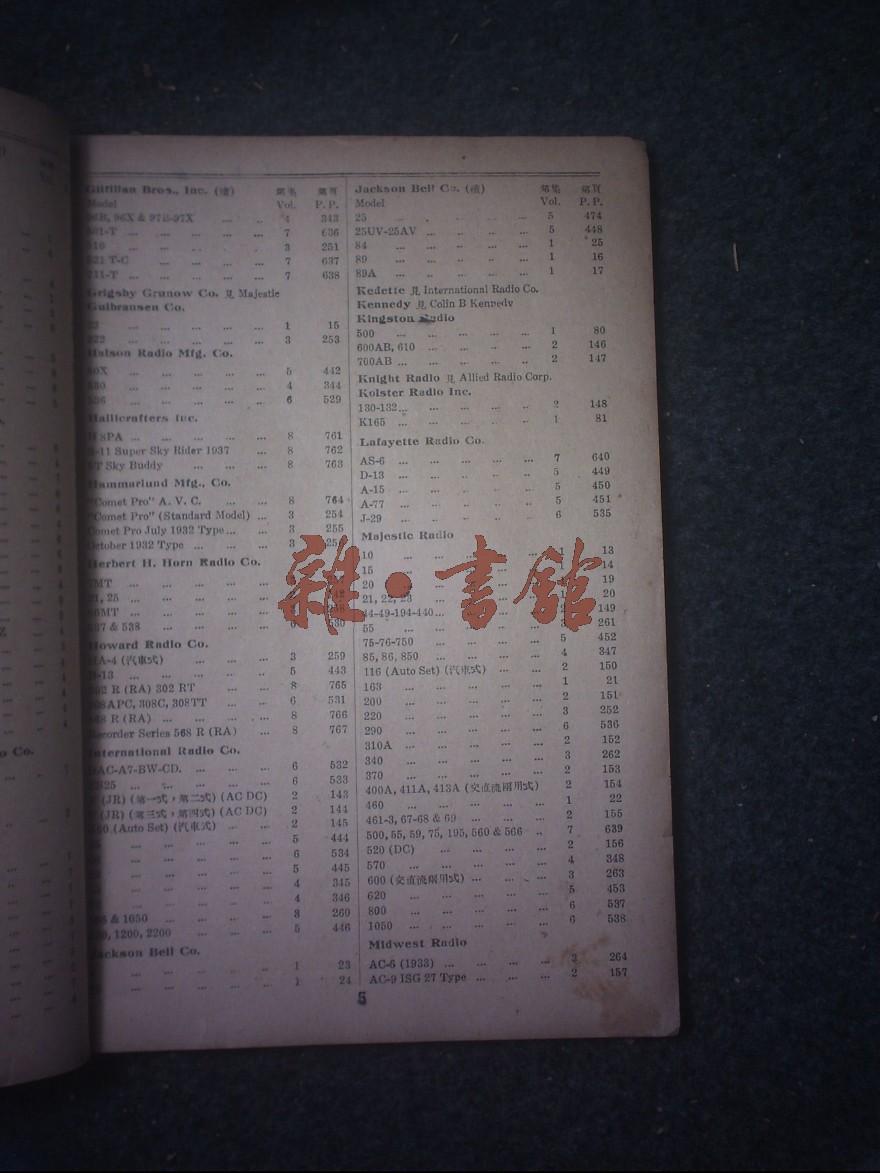 Gilfillan Bros., Inc. (續) 第集 第頁
Model Vol. P. P.
96X & 97B-97X ... .. 4 343
... ... ... ... 7 636
... ... ... ... ... 3 251
T-C ... ... ... ... 7 637
711-T ... ... ... ... 7 638
Grigsby Grunow Co. 見 Majestic
Gulbransen Co.
... ... ... ... ... 1 15
322 ... ... ... ... ... 3 253
Halson Radio Mfg. Co.
... ... ... ... ... 5 442
... ... ... ... ... 4 344
... ... ... ... ... 6 529
Hallicrafters Inc.
... ... ... ... ... 8 761
Super Sky Rider 1937 ... 8 762
Sky Buddy ... ... ... 8 763
Hammarlund Mfg., Co.
"Comet Pro" A. V. C. ... ... 8 764
"Comet Pro" (Standard Model) ... 3 254
Comet Pro July 1932 Type ... ... 3 255
October 1932 Type ... ... ... 3
Herbert H. Horn Radio Co.
... ... ... ... ...
21, 25 ... ... ... ... ...
... ... ... ... ...
& 538 ... ... ... ... 530
Howard Radio Co.
HA-4 (汽車式) ... ... ... 3 259
... ... ... ... ... 5 443
302 R (RA) 302 RT ... ... 8 765
308APC, 308C, 308TT ... ... 6 531
R (RA) ... ... ... ... 8 766
Recorder Series 568 R (RA) ... 8 767
International Radio Co.
AC-A7-BW-CD. ... ... ... 6 532
... ... ... ... ... 6 533
(JR) (第一式，第二式) (AC DC) 2 143
(JR) (第三式，第四式) (AC DC) 2 144
(Auto Set) (汽車式) ... ... 2 145
... ... ... ... ... 5 444
... ... ... ... ... 6 534
... ... ... ... ... 5 445
... ... ... ... ... 4 345
... ... ... ... ... 4 346
& 1050 ... ... ... ... 3 260
1200, 2200 ... ... ... 5 446
Jackson Bell Co.
... ... ... ... ... 1 23
... ... ... ... ... 1 24
Jackson Bell Co. (續) 第集 第頁
Model Vol. P. P.
25 ... . ... ... ... 5 474
25UV-25AV ... ... ... ... 5 448
84 ... ... ... ... ... 1 25
89 ... ... ... .. ... 1 16
89A ... ... ... ... ... 1 17
Kedette 見 International Radio Co.
Kennedy 見 Colin B Kennedy
Kingston Radio
500 ... ... ... ... ... 1 80
600AB, 610 ... ... .. ... 2 146
700AB ... ... ... .. ... 2 147
Knight Radio 見 Allied Radio Corp.
Kolster Radio Inc.
130-132... ... ... ... .. 2 148
K165 ... ... ... ... .. 1 81
Lafayette Radio Co.
AS-6 ... ... ... ... ... 7 640
D-13 ... ... ... ... ... 5 449
A-15 ... ... ... ... ... 5 450
A-77 ... ... ... ... ... 5 451
J-29 ... ... ... ... ... 6 535
Majestic Radio
10 ... ... ... ... ... 1 13
15 ... ... 14
20 ... ... 19
21, 22, 23 ... 1 20
44-49-194-440... ... ... 2 149
55 ... ... ... ... 3 261
75-76-750 ... ... ... ... 5 452
85, 86, 850 ... ... ... ... 4 347
116 (Auto Set) (汽車式) ... ... 2 150
163 ... ... ... ... ... 1 21
200 ... ... ... ... ... 2 151
220 ... ... ... ... ... 3 252
290 ... ... ... ... ... 6 536
310A ... ... ... ... ... 2 152
340 ... ... ... ... ... 3 262
370 ... ... ... ... ... 2 153
400A, 411A, 413A (交直流兩用式) 2 154
460 ... ... ... ... ... 1 22
461-3, 67-68 & 69 ... ... ... 2 155
500, 55, 59, 75, 195, 560 & 566 .. 7 639
520 (DC) ... ... ... ... 2 156
570 ... ... ... ... ... 4 348
600 (交直流兩用式) ... ... ... 3 263
620 ... ... ... ... ... 5 453
800 ... ... ... ... ... 6 537
1050 ... ... ... ... ... 6 538
Midwest Radio
AC-6 (1933) ... ... ... ... 3 264
AC-9 ISG 27 Type ... ... ... 2 157
5
雜·書館